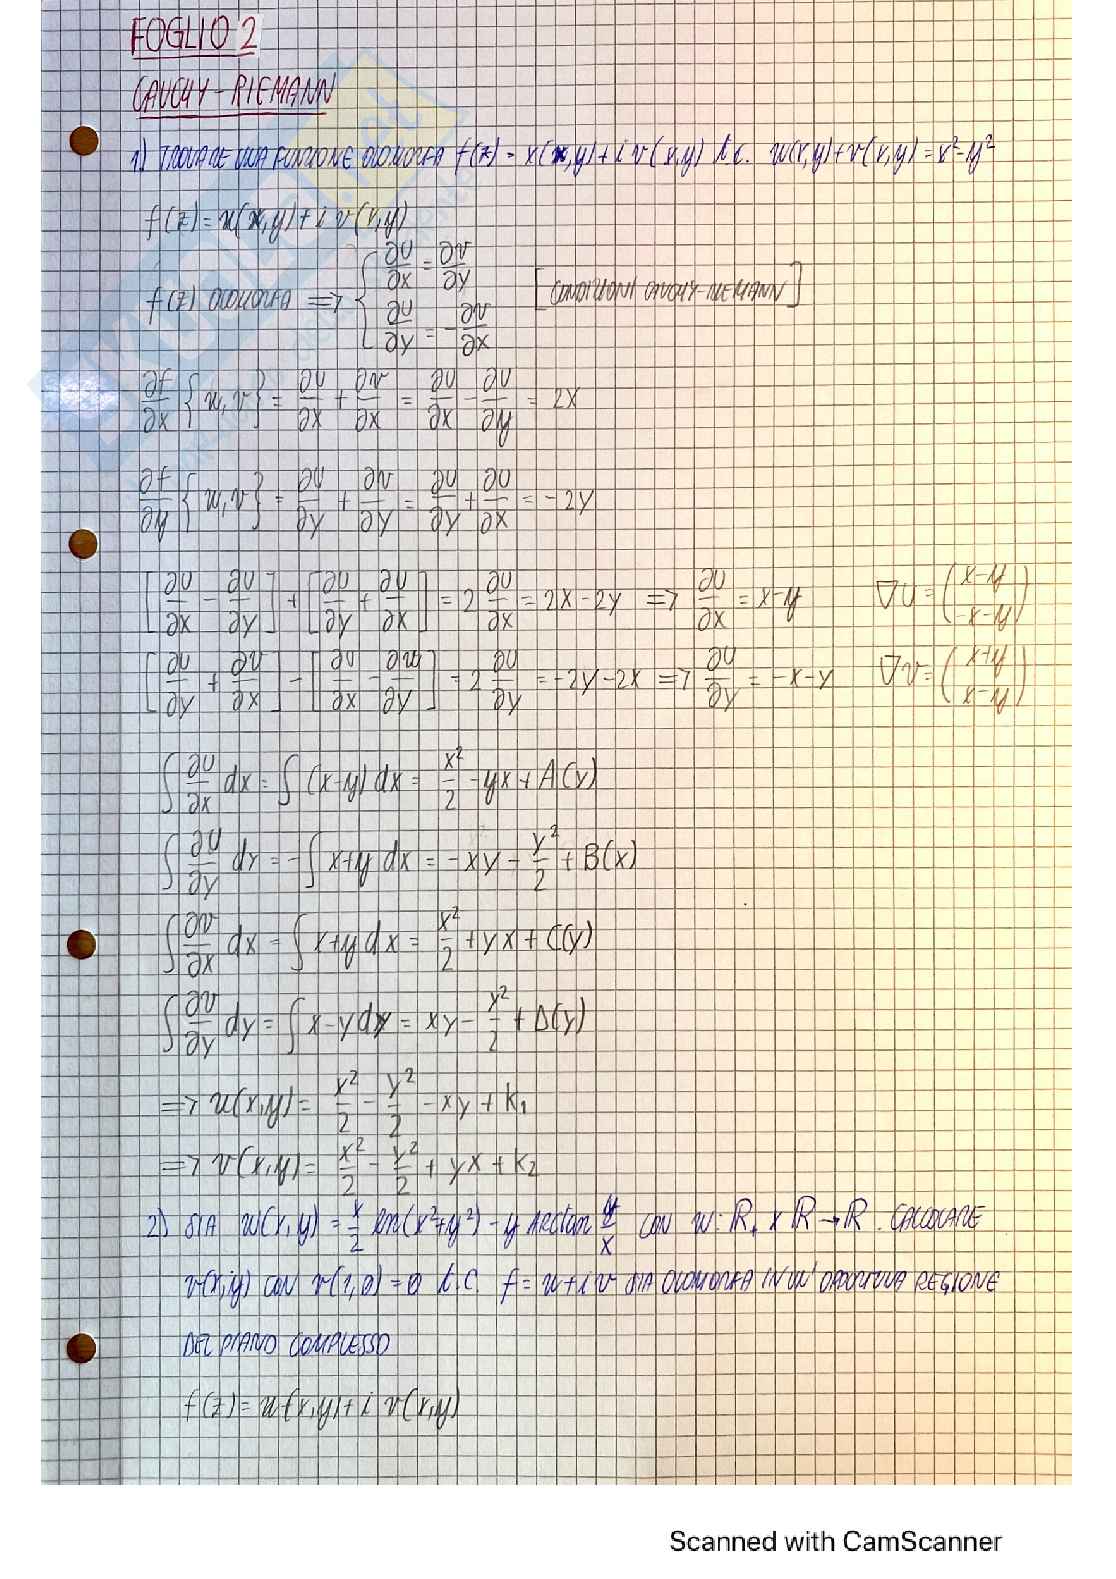 FOGLIO 2
CAUCHY-RIEMANN
1) TROVARE UNA FUNZIONE OLOMORFA f(z) = x(x,y) + i v(x,y) t.c. u(x,y) + v(x,y) = x² - y²
f(z) = u(x,y) + i v(x,y)
f(z) OLOMORFA => { ∂u/∂x = ∂v/∂y
∂u/∂y = - ∂v/∂x [CONDIZIONI CAUCHY-RIEMANN]
∂f/∂x {u,v} = ∂u/∂x + ∂v/∂x = ∂u/∂x - ∂u/∂y = 2x
∂f/∂y {u,v} = ∂u/∂y + ∂v/∂y = ∂u/∂y + ∂u/∂x = -2y
[∂u/∂x - ∂u/∂y] + [∂u/∂y + ∂u/∂x] = 2 ∂u/∂x = 2x - 2y => ∂u/∂x = x-y ∇u = (x-y
-x-y)
[∂u/∂y + ∂u/∂x] - [∂u/∂x - ∂u/∂y] = 2 ∂u/∂y = -2y - 2x => ∂u/∂y = -x-y ∇v = (x+y
x-y)
∫ ∂u/∂x dx = ∫ (x-y) dx = x²/2 - yx + A(y)
∫ ∂u/∂y dy = -∫ x+y dx = -xy - y²/2 + B(x)
∫ ∂v/∂x dx = ∫ x+y dx = x²/2 + yx + C(y)
∫ ∂v/∂y dy = ∫ x-y dy = xy - y²/2 + D(y)
=> u(x,y) = x²/2 - y²/2 - xy + k₁
=> v(x,y) = x²/2 - y²/2 + yx + k₂
2) SIA u(x,y) = x/2 ln(x²+y²) - y ARCtan y/x CON u: R₊ x R → R. CALCOLARE
v(x,y) CON v(1,0)=0 t.c. f = u + i v SIA OLOMORFA IN UN' OPPORTUNA REGIONE
DEL PIANO COMPLESSO
f(z) = u(x,y) + i v(x,y)
Scanned with CamScanner